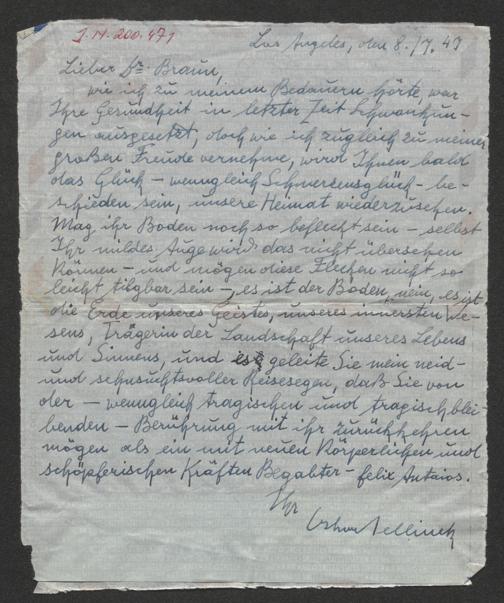 J.N. 200.471
Los Angeles, den 8./7. 47
Lieber Dr. Braun,
wie ich zu meinem Bedauern hörte, war
Ihre Gesundheit in letzter Zeit Schwankun-
gen ausgesetzt, doch wie ich zugleich zu meiner
großen Freude vernehme, wird Ihnen bald
das Glück – wenngleich Schmerzensglück – be-
schieden sein, unsere Heimat wiederzusehen.
Mag ihr Boden noch so befleckt sein – selbst
Ihr mildes Auge wird das nicht übersehen
können – und mögen diese Flecken nicht so
leicht tilgbar sein –, es ist der Boden, nein, es ist
die Erde unseres Geistes, unseres innersten We-
sens, Trägerin der Landschaft unseres Lebens
und Sinnens, und es geleite Sie mein neid-
und sehnsuchtsvoller Reisesegen, daß Sie von
der – wenngleich tragischen und tragisch blei-
benden – Berührung mit ihr zurückkehren
mögen als ein mit neuen körperlichen und
schöpferischen Kräften Begabter – felix Antaios.
Ihr
Oskar Jellinek